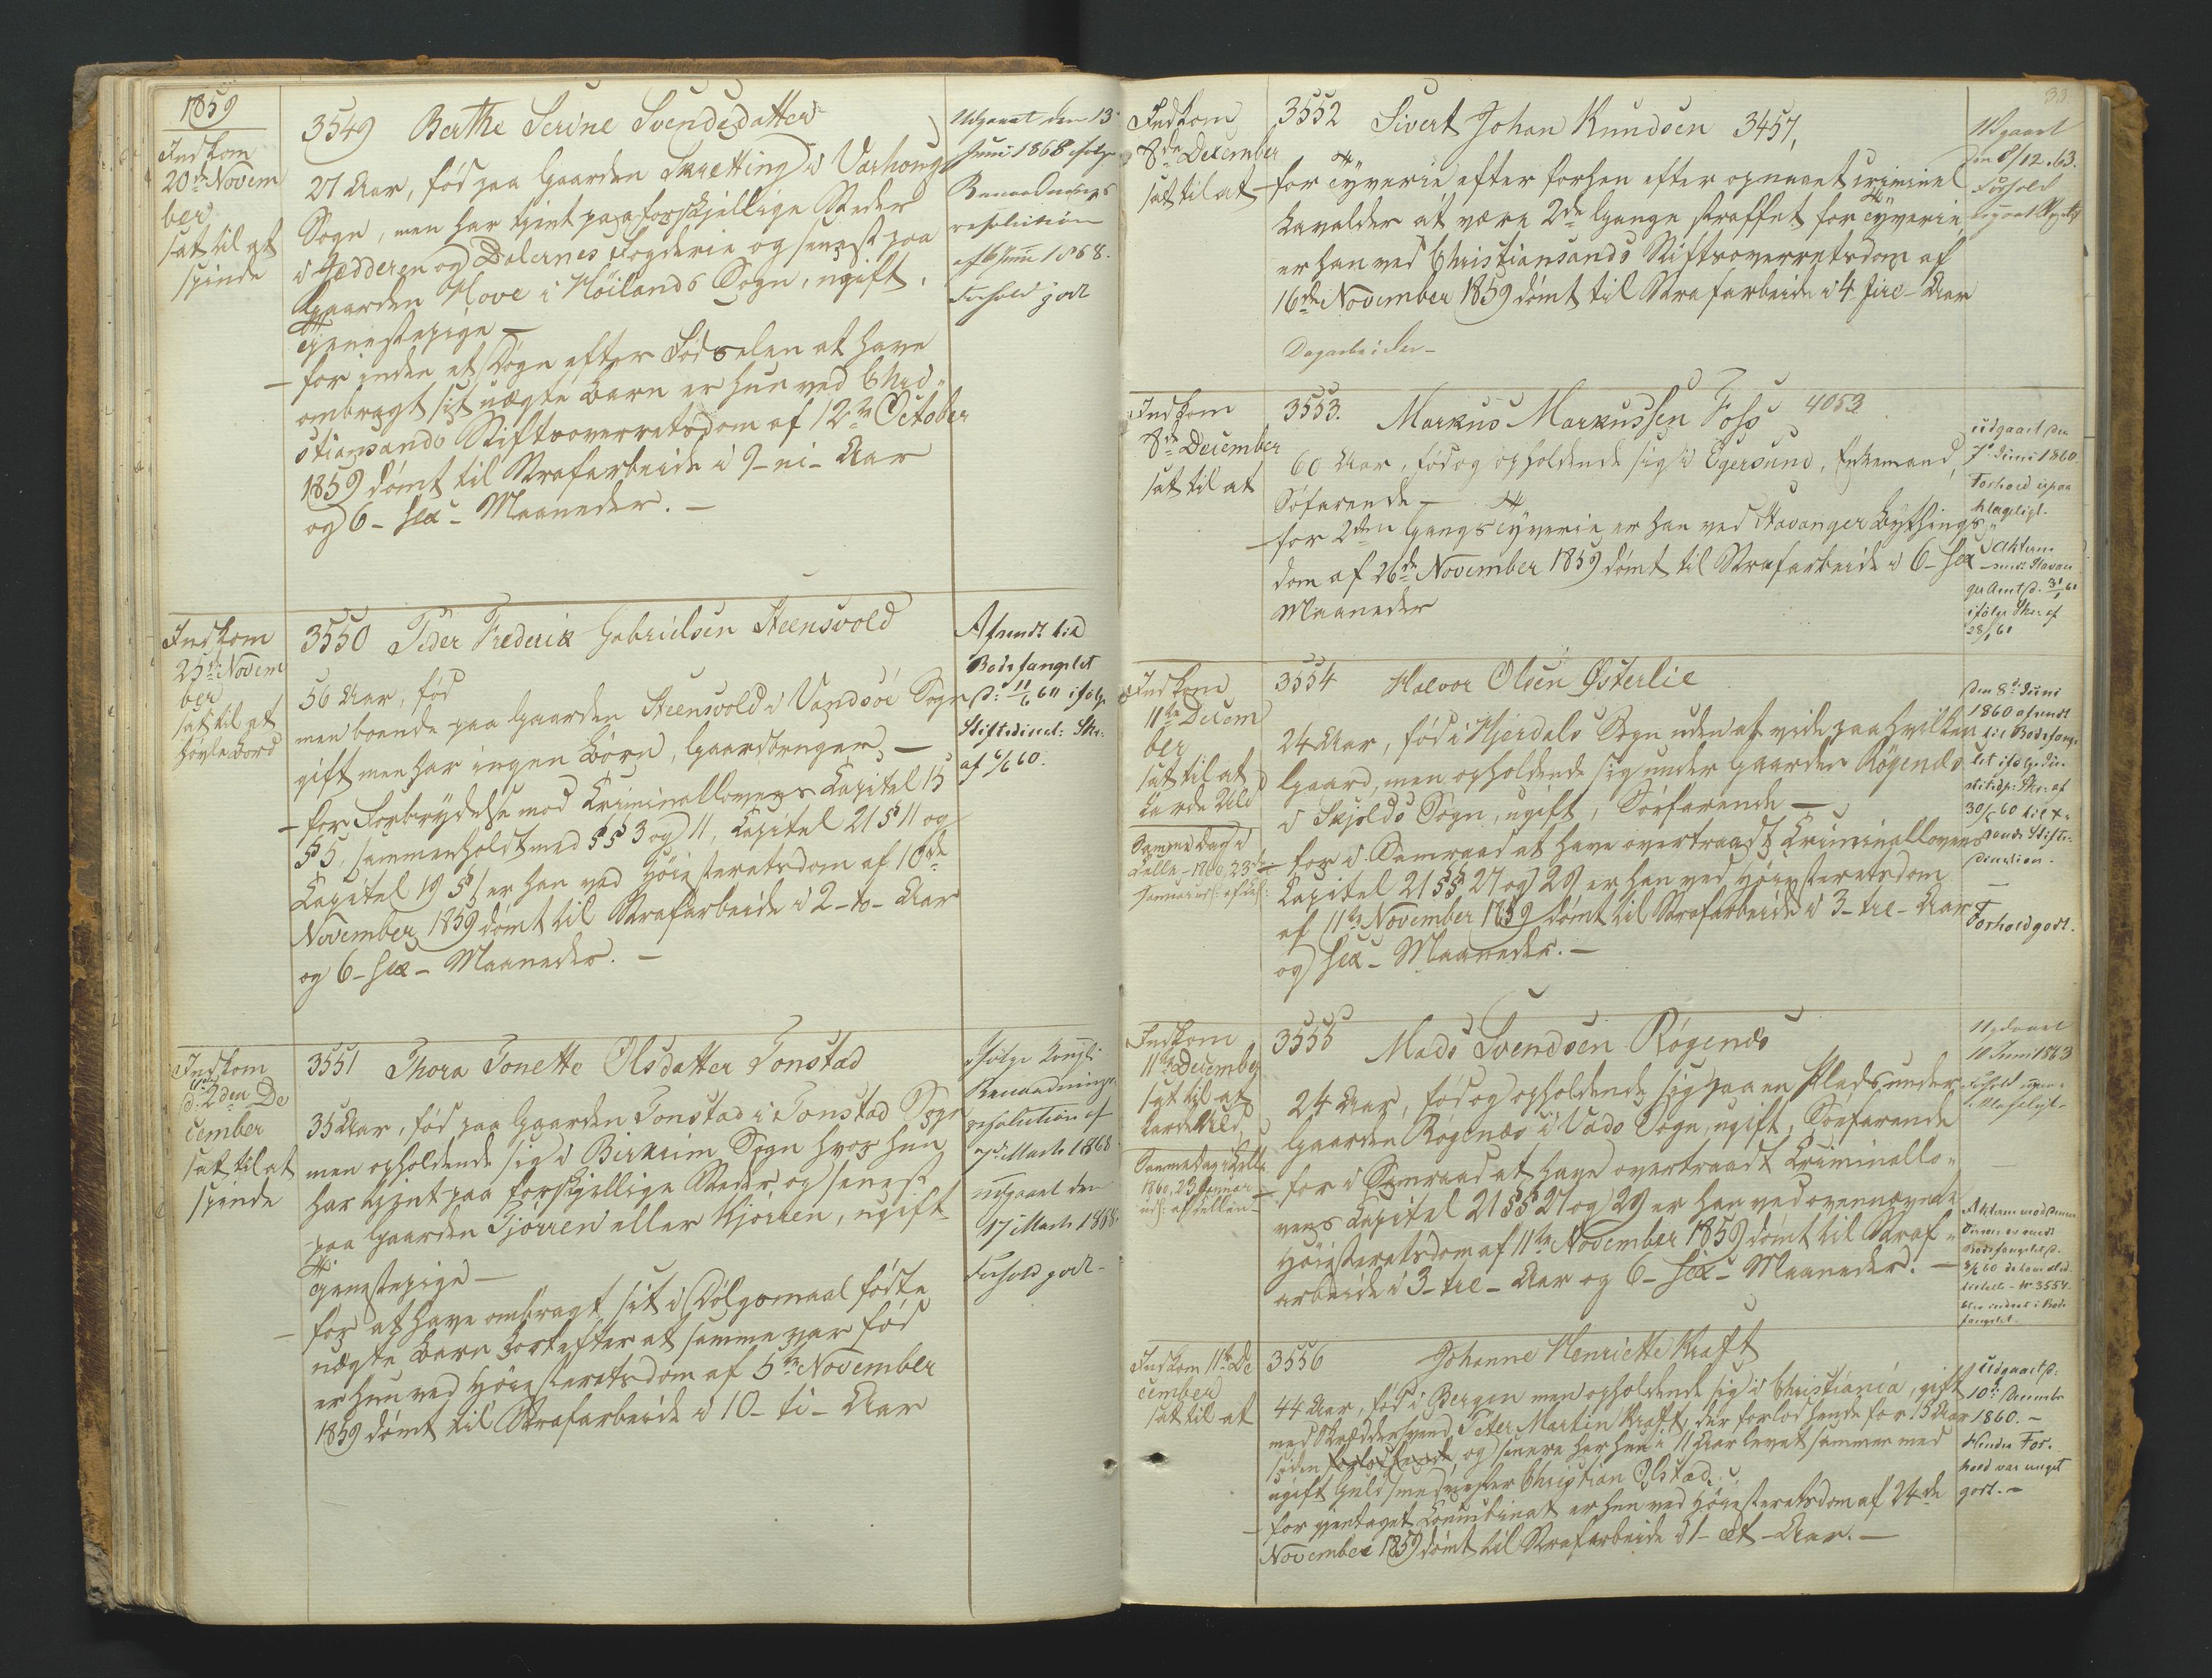 1859
Indkom
20de Novem
ber
sat til at
spinde
3549 Berthe Serine Svendsdatter
27 Aar, fød paa Gaarden Skretting i Varhoug
Sogn, men har tjent paa forskjellige Steder
i Jædderen og Dalernes Fogderie og senest paa
Gaarden Hove i Höilands Sogn, ugift,
Tjenestepige —
— for inden et Døgn efter Fødselen at have
ombragt sit uægte Barn er hun ved Chri-
stiansands Stiftsoverretsdom af 12te October
1859 dømt til Strafarbeide i 9 - ni - Aar
og 6 - sex - Maaneder. —
Udgaaet den 13
Juni 1868 ifølge
Benaadnings
resolution
af 6 Juni 1868.
Forhold godt
Indkom
25de Novem
ber
sat til at
høvle Bord
3550 Peder Frederik Gabrielsen Steensvold
56 Aar, fød
men boende paa Gaarden Steensvold i Vandsöe Sogn
gift men har ingen Børn, Gaardbruger —
— for Forbrydelse mod Criminallovens Capitel 15
§ 5, sammenholdt med §§ 3 og 11, Capitel 21 § 11 og
Capitel 19 § 1 er han ved Høiesteretsdom af 10de
November 1859 dømt til Strafarbeide i 2 - to - Aar
og 6 - sex - Maaneder. —
Afsendt til
Bodsfængslet
d: 11/6 60 ifølge
Stiftsdirect: Skr:
af 6/6 60.
Indkom
d: 2den De
cember
sat til at
spinde
3551 Thora Tonette Olsdatter Tonstad
35 Aar, fød paa Gaarden Tonstad i Tonstad Sogn
men opholdende sig i Birkrim Sogn hvor hun
har tjent paa forskjellige Steder og senest
paa Gaarden Tjörren eller Kjörren, ugift
Tjenestepige —
— for at have ombragt sit i Dølgsmaal fødte
uægte Barn kort efter at samme var fød
er hun ved Høiesteretsdom af 5te November
1859 dømt til Strafarbeide i 10 - ti - Aar
Ifølge Kongl:
Benaadnings
resolution af
7de Marts 1868
udgaaet den
17 Marts 1868.
Forhold godt -
33.
Indkom
8de December
sat til at
3552 Sivert Johan Knudsen 3457,
— for Tyverie, efter forhen efter opnaaet criminel
Lavalder at være 2de Gange straffet for Tyverie,
er han ved Christiansands Stiftsoverretsdom af
16de November 1859 dømt til Strafarbeide i 4 fire - Aar
Dagarbeider -
Udgaaet
den 8/12. 63.
Forhold
Indkom
8de December
sat til at
3553. Markus Markussen Foss 4053
60 Aar, fød og opholdende sig i Egersund, Enkemand,
Söfarende —
— for 2den Gangs Tyverie er han ved Stavanger Bythings
dom af 26de November 1859 dømt til Strafarbeide i 6 - sex -
Maaneder
udgaaet den
7de Juni 1860.
Forhold upaa
klageligt.
Akterne
sendt Stavan
ger Amt d. 31/1 61
ifølge Skr: af
28/1 61
Indkom
11te Decem
ber
sat til at
karde Uld
Samme Dag i
Celle - 1860, 23de
Januar
3554 Halvor Olsen Østerlie
24 Aar, fød i Hjerdals Sogn uden at vide paa hvilken
Gaard, men opholdende sig under Gaarden Rögenæs
i Skjolds Sogn, ugift, Söefarende —
— for i Samraad at have overtraadt Criminallovens
Capitel 21 §§ 27 og 29 er han ved Høiesteretsdom
af 11te November 1859 dømt til Strafarbeide i 3 - tre - Aar
og sex - Maaneder. —
Den 8de Juni
1860 afsendt
til Bodsfæng
let ifølge Ju-
stitsdp: Skr: af
30/5 60 til Xs
sands Stifts-
direction.
—
Forhold godt.
Indkom
11te Decembr
sat til at
karde Uld
Samme Dag i Celle
1860, 23 Januar
uds: af Cellen -
3555 Mads Svendsen Rögenæs
24 Aar, fød og opholdende sig paa en Plads under
Gaarden Rögenæs i Vads Sogn, ugift, Söefarende
— for i Samraad at have overtraadt Criminallo-
vens Capitel 21 §§ 27 og 29 er han ved ovennævnte
Høiesteretsdom af 11te November 1859 dømt til Straf-
arbeide i 3 - tre - Aar og 6 - sex - Maaneder. —
Udgaaet
10 Juni 1863
Forhold upaa-
klageligt -
—
Akterne mod denne
Bodsfængslet d.
8/6 60 da
Nr 3554.
blev indsat i Bods
fængslet.
Indkom 11te De
cember
sat til at
3556 Johanne Henriette Kraft
44 Aar, fød i Bergen men opholdende sig i Christiania, gift
med Skræddersvend Peter Martin Kraft, der forlod hende for 15 Aar
siden forlod hende, og senere har hun i 11 Aar levet sammen med
ugift Guldsmedmester Christian Olstad.
— for gjentaget Concubinat er hun ved Høiesteretsdom af 24de
November 1859 dømt til Strafarbeide i 1 - et - Aar. —
Udgaaet d:
10de Decembr
1860. —
Hendes For-
hold var meget
godt. —